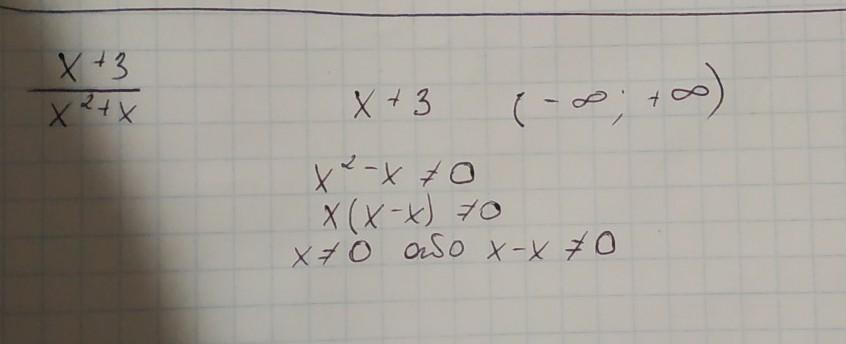 x+3
x²+x
x+3 (-∞; +∞)
x²-x ≠0
x(x-x) ≠0
x≠0 або x-x ≠0